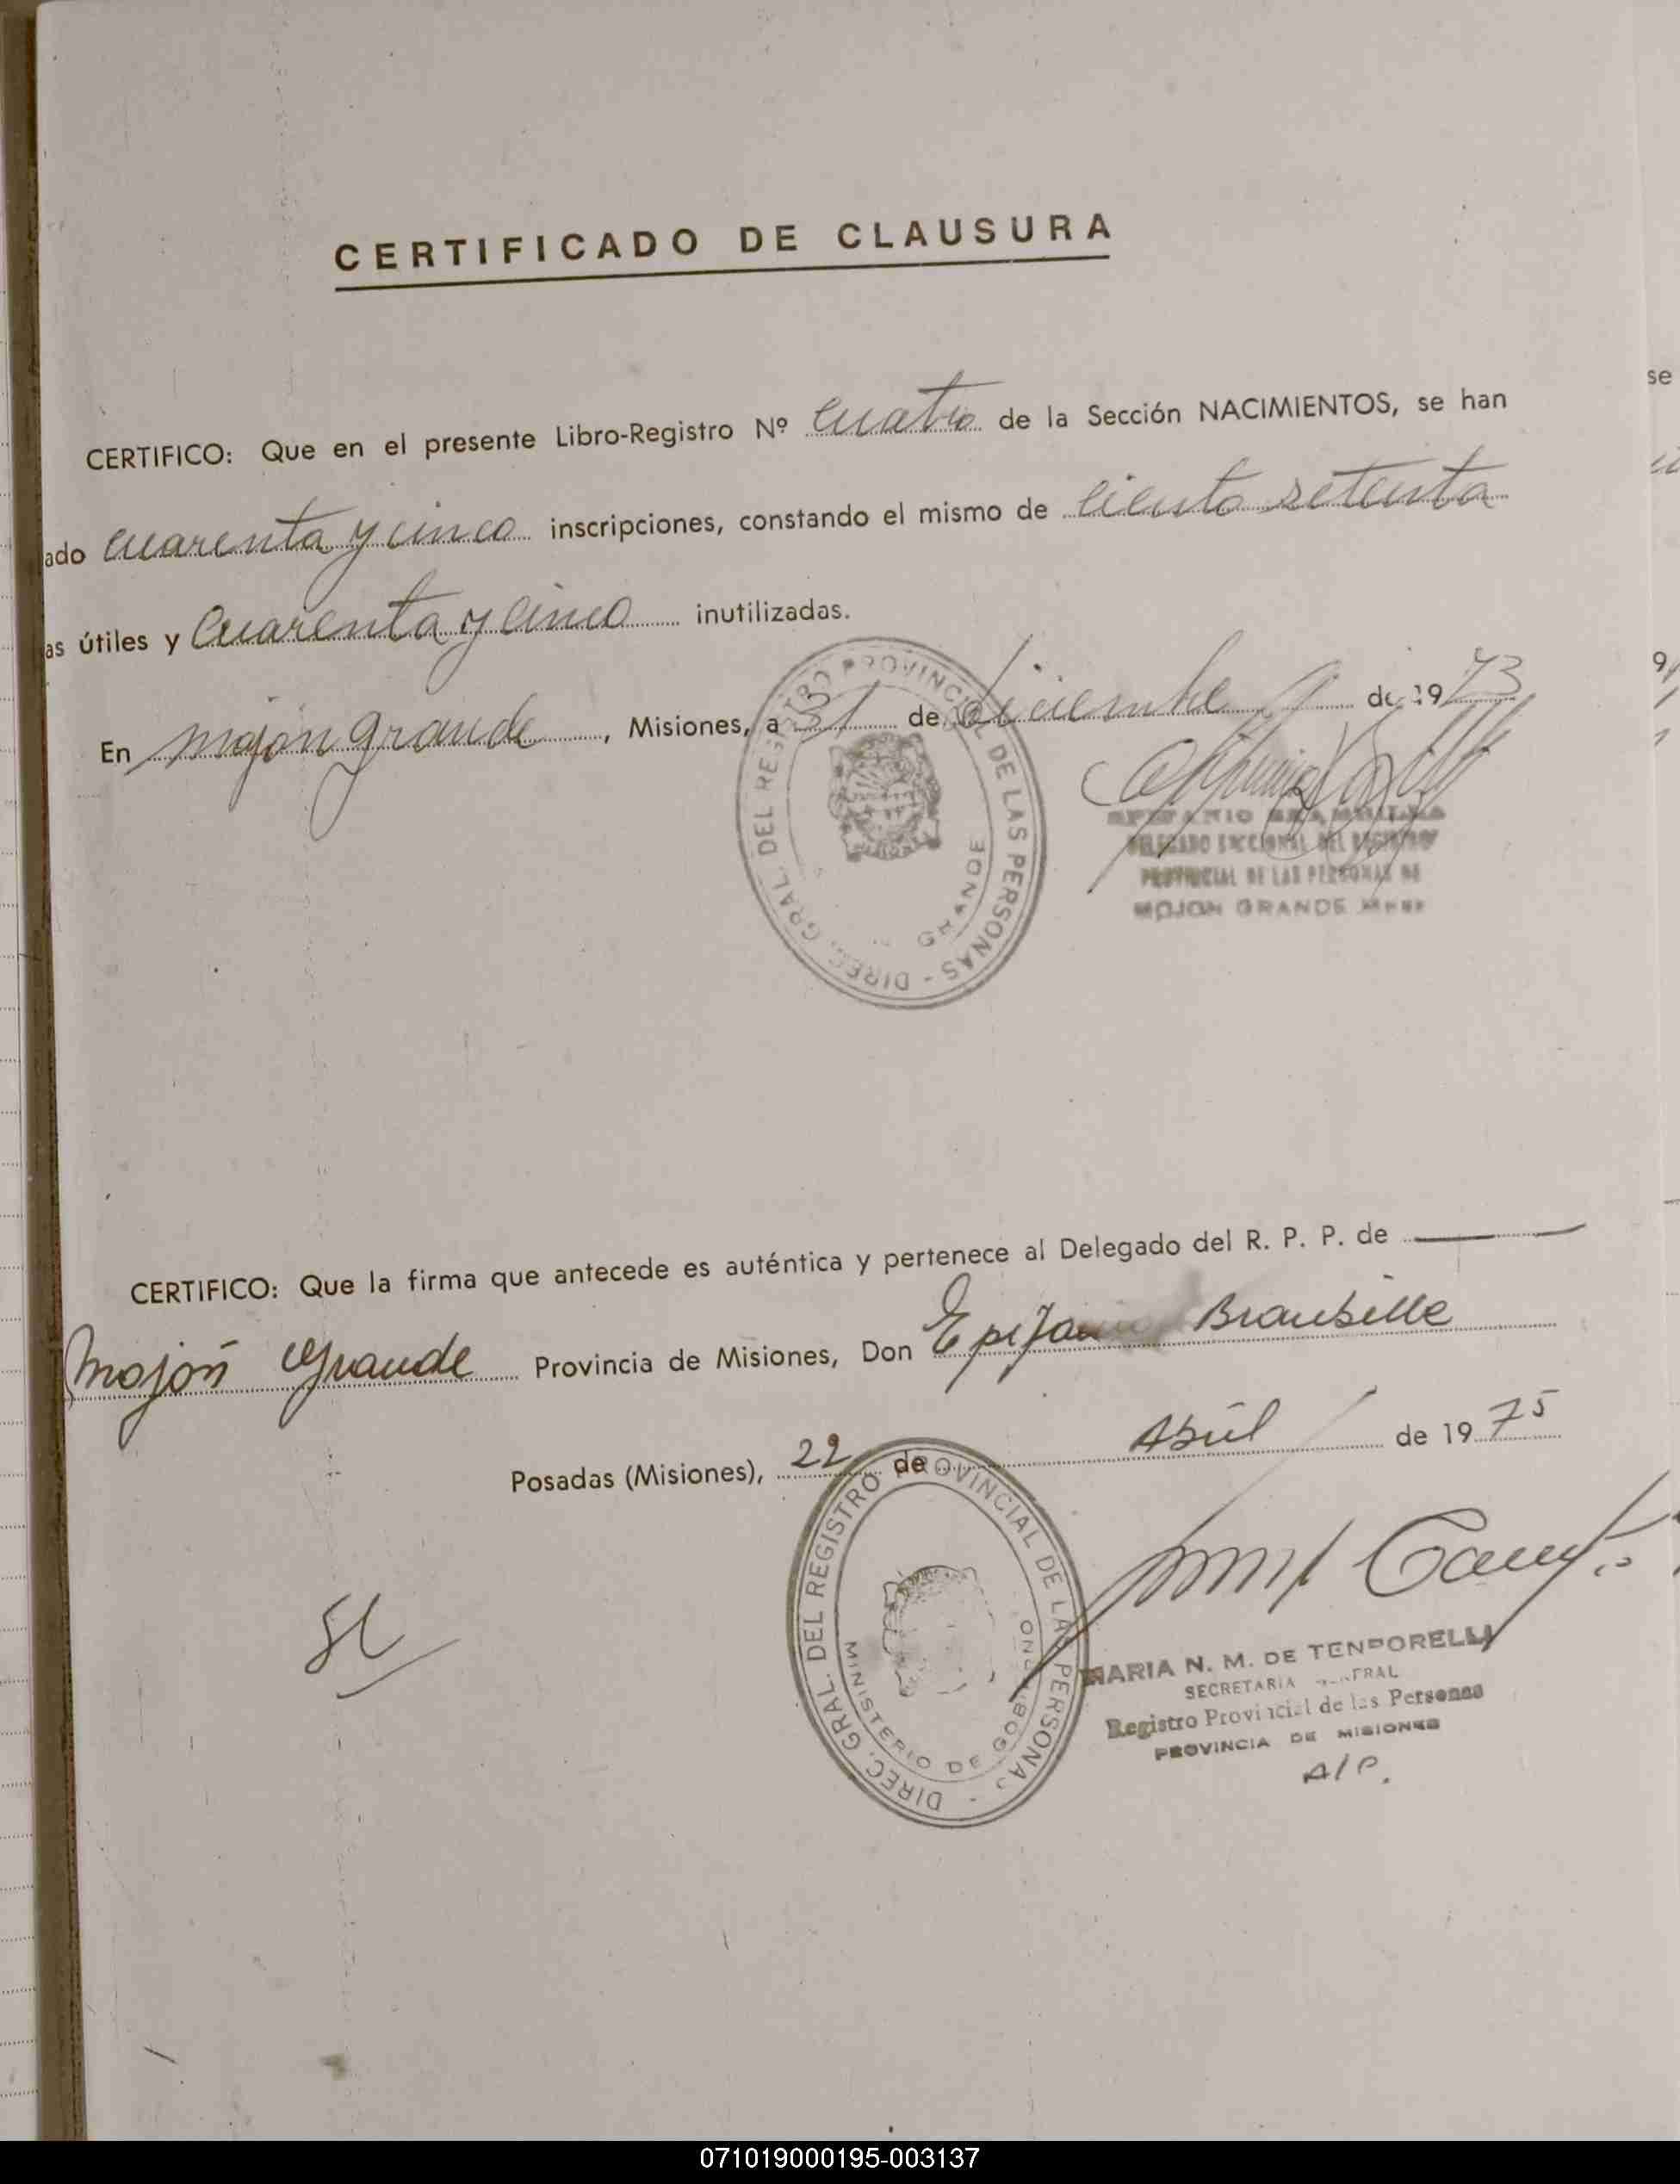 CERTIFICADO DE CLAUSURA
se
CERTIFICO: Que en el presente Libro-Registro Nº Cuatro de la Sección NACIMIENTOS, se han
ado cuarenta y cinco inscripciones, constando el mismo de Ciento setenta
as útiles y Cuarenta y Cinco inutilizadas.
En mojón grande, Misiones, a 31 de diciembre de 1973
DIREC. GRAL. DEL REGISTRO PROVINCIAL DE LAS PERSONAS -
GRANDE
DELEGADO SECCIONAL DEL REGISTRO
PROVINCIAL DE LAS PERSONAS DE
MOJON GRANDE
CERTIFICO: Que la firma que antecede es auténtica y pertenece al Delegado del R. P. P. de
Mojón Grande Provincia de Misiones, Don Epifanio Brambille
Posadas (Misiones), 22 de Abril de 1975
DIREC. GRAL. DEL REGISTRO PROVINCIAL DE LAS PERSONAS -
MINISTERIO DE GOBIERNO
MARIA N. M. DE TEMPORELLI
SECRETARIA GENERAL
Registro Provincial de las Personas
PROVINCIA DE MISIONES
A/C.
071019000195-003137